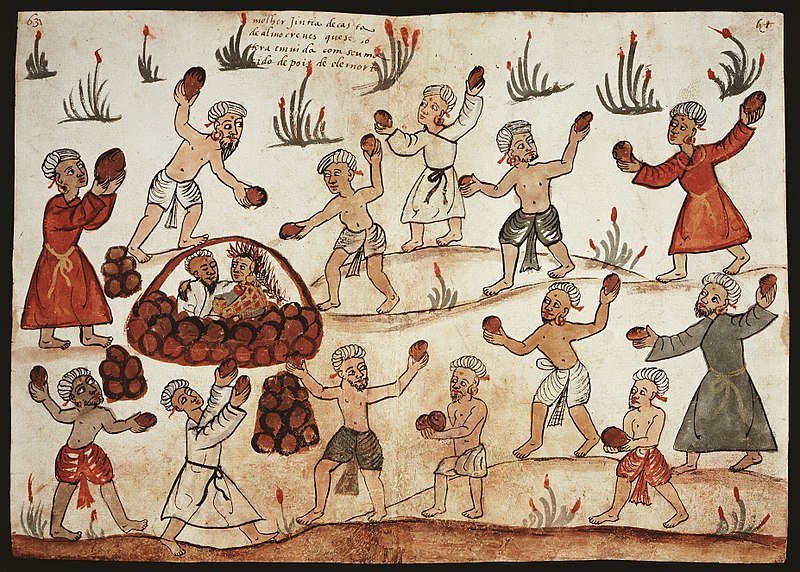 63
molher Jintia de casta
de almocreves que se so
tera em vida com seu ma
rido depois de ele morto